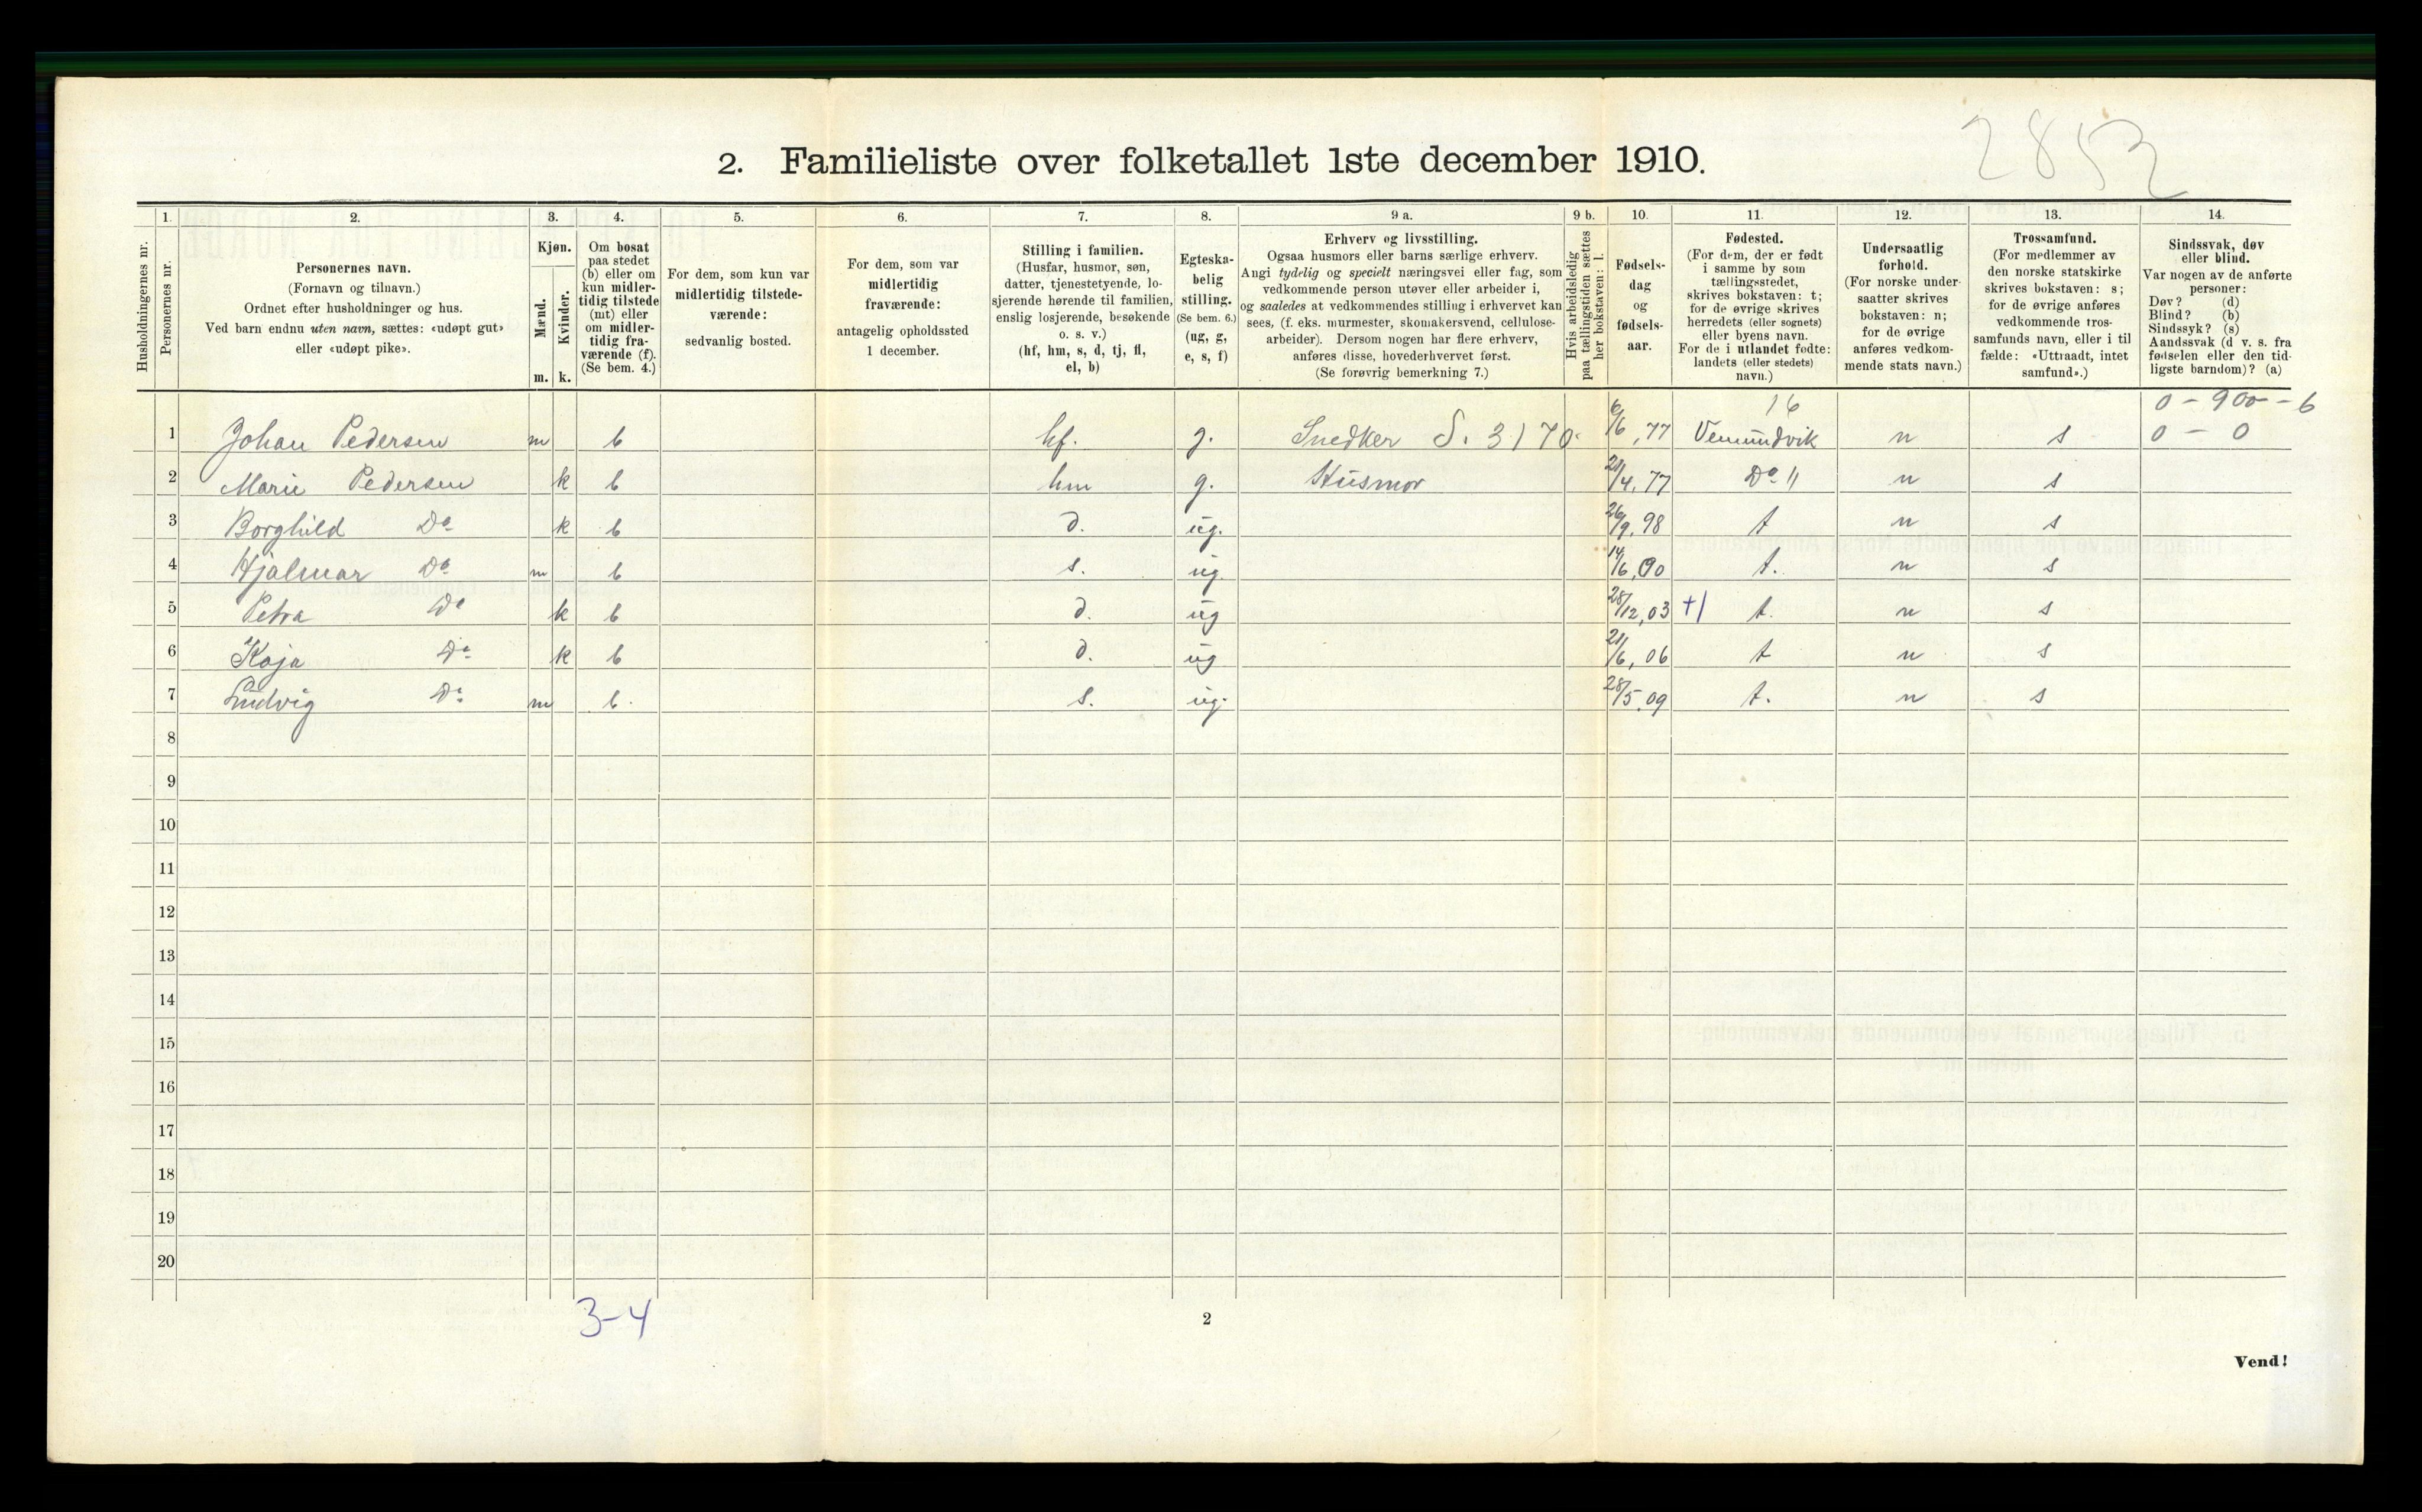 2852
2. Familieliste over folketallet 1ste december 1910.
1. 2. 3. 4. 5. 6. 7. 8. 9 a. 9 b. 10. 11. 12. 13. 14.
Husholdningernes nr.
Personernes nr.
Personernes navn.
(Fornavn og tilnavn.)
Ordnet efter husholdninger og hus.
Ved barn endnu uten navn, sættes: «udøpt gut»
eller «udøpt pike».
Kjøn.
Mænd.
Kvinder.
m. k.
Om bosat
paa stedet
(b) eller om
kun midler-
tidig tilstede
(mt) eller
om midler-
tidig fra-
værende (f).
(Se bem. 4.)
For dem, som kun var
midlertidig tilstede-
værende:
sedvanlig bosted.
For dem, som var
midlertidig
fraværende:
antagelig opholdssted
1 december.
Stilling i familien.
(Husfar, husmor, søn,
datter, tjenestetyende, lo-
sjerende hørende til familien,
enslig losjerende, besøkende
o. s. v.)
(hf, hm, s, d, tj, fl,
el, b)
Egteska-
belig
stilling.
(Se bem. 6.)
(ug, g,
e, s, f)
Erhverv og livsstilling.
Ogsaa husmors eller barns særlige erhverv.
Angi tydelig og specielt næringsvei eller fag, som
vedkommende person utøver eller arbeider i,
og saaledes at vedkommendes stilling i erhvervet kan
sees, (f. eks. murmester, skomakersvend, cellulose-
arbeider). Dersom nogen har flere erhverv,
anføres disse, hovederhvervet først.
(Se forøvrig bemerkning 7.)
Hvis arbeidsledig
paa tællingstiden sættes
her bokstaven: l.
Fødsels-
dag
og
fødsels-
aar.
Fødested.
(For dem, der er født
i samme by som
tællingsstedet,
skrives bokstaven: t;
for de øvrige skrives
herredets (eller sognets)
eller byens navn.
For de i utlandet fødte:
landets (eller stedets)
navn.)
Undersaatlig
forhold.
(For norske under-
saatter skrives
bokstaven: n;
for de øvrige
anføres vedkom-
mende stats navn.)
Trossamfund.
(For medlemmer av
den norske statskirke
skrives bokstaven: s;
for de øvrige anføres
vedkommende tros-
samfunds navn, eller i til
fælde: «Uttraadt, intet
samfund».)
Sindssvak, døv
eller blind.
Var nogen av de anførte
personer:
Døv? (d)
Blind? (b)
Sindssyk? (s)
Aandssvak (d v. s. fra
fødselen eller den tid-
ligste barndom)? (a)
16 0 - 900 - 6
1 Johan Pedersen m b hf. g. Snedker S. 3170. 6/6, 77 Vemundvik n s 0 - 0
2 Marie Pedersen k b hm g. Husmor 21/4, 77 Do 11 n s
3 Borghild Do k b d. ug. 26/9, 98 t n s
4 Hjalmar Do m b s. ug 14/6, 00 t. n s
5 Petra Do k b d. ug 28/12, 03 +1 t. n s
6 Kaja Do k b d. ug 21/6, 06 t n s
7 Ludvig Do m b. s. ug. 28/5, 09 t. n s
8
9
10
11
12
13
14
15
16
17
18
19
20
3-4
2
Vend!